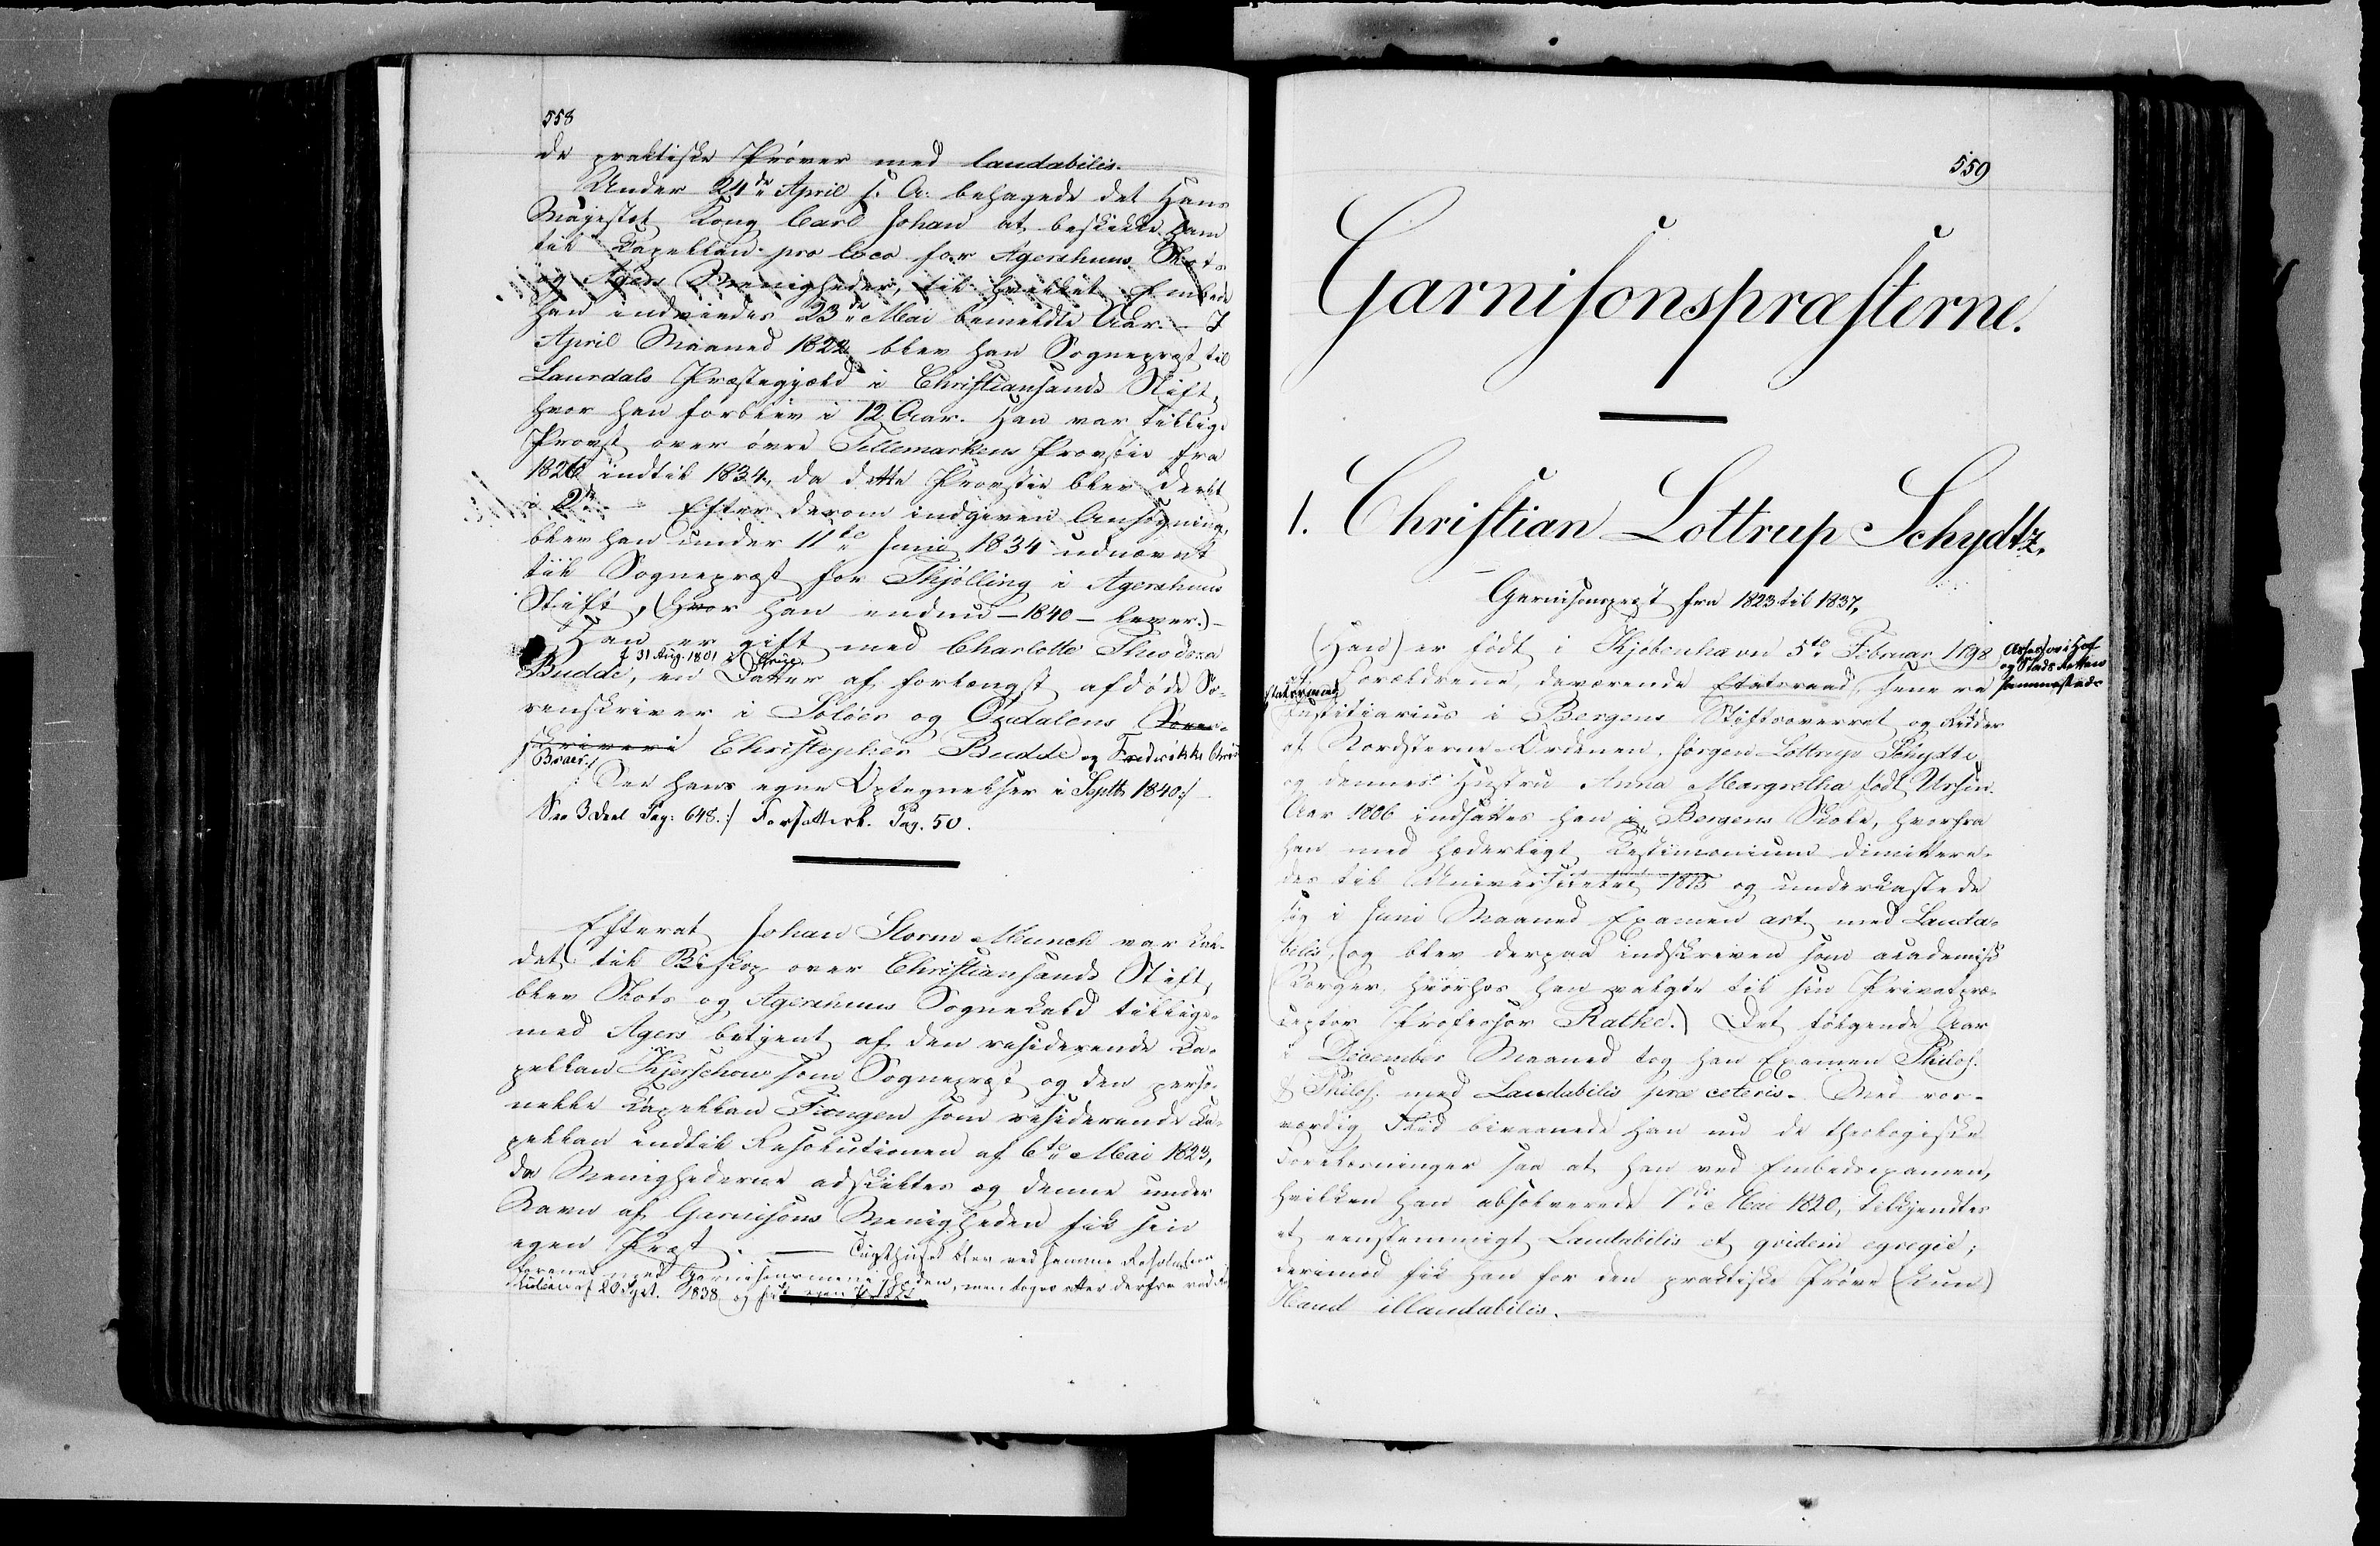 558
de praktiske Prøver med laudabilis.
Under 24de April s. A. behagede det Hans
Majestet Kong Carl Johan at beskikke ham
til Kapellan pro loco for Agershuus Slots
og Agers Menigheder, til hvilket Embede
han indviedes 23de Mai bemeldte Aar. - I
April Maaned 1822 blev han Sognepræst til
Laurdals Præstegjæld i Christiansands Stift,
hvor han forblev i 12 Aar. Han var tillige
Provst over övre Tellemarkens Provstie fra
1826 indtil 1834, da dette Provstie blev deelt
i 2de. - Efter derom indgiven Ansøgning
blev han under 11te Junii 1834 udnævnt
til Sognepræst for Thjølling i Agershuus
Stift, (hvor han endnu - 1840 - lever.) -
Han er gift med Charlotte Theodora
f. 31 Aug. 1801
Budde, en Datter af forlængst afdøde So-
renskriver i Soløer og Oudalens Soren-
skriveri Christopher Budde og Fredrikke
Braer.
See hans egne Optegnelser i Septbr 1840 :/
See 3 Deel Pag: 648. :/ Forfatterl. Pag. 50.
Efterat Johan Storm Munch var kal-
det til Biskop over Christiansands Stift,
blev Slots og Agershuus Sognekald tillige-
med Agers betjent af den residerende Ka-
pellan Kjerschow som Sognepræst og den perso-
nelle Kapellan Finngen som residerende Ka-
pellan indtil Resolutionen af 6te Mai 1823,
da Menighederne adskiltes og denne under
Navn af Garnisons Menigheden fik sin
egen Præst. — Tugthuset blev ved samme Resolution
forenet med Garnisonsmenigheden, men toges atter derfra ved
af 20 Sept. 1838 og fik egen Præst.
559
Garnisonspræsterne.
1. Christian Lottrup Schydtz.
Garnisonspræst fra 1823 til 1837,
(Han) er født i Kjøbenhavn 5te Februar 1798 Assessor i Hof
og Stads Retten
af Forældrene, daværende Etatsraad, senere sammestede
Etatsraad
Justitiarius i Bergens Stiftsoverret og Ridder
af Nordstierne-Ordenen, Jørgen Lottrup Schydtz
og dennes Hustru Anna Margretha født Ursin.
Aar 1806 indsattes han i Bergens Skole, hvorfra
han med hæderligt Testimonium dimittere-
des til Universitetet 1815 og underkastede
sig i Juni Maaned Examen art. med Lauda-
bilis, (og blev derpaa indskreven som academisk
Borger, hvorhos han valgte til sin Privatpræ-
ceptor Professor Rathke.) Det følgende Aar
i December Maaned tog han Examen Philol.
& Philos. med Laudabilis præ ceteris. Med roes-
værdig Flid bivaanede han nu de theologiske
Forelæsninger saa at han ved Embedsexamen,
hvilken han absolverede 1ste Mai 1820, tilkjendtes
et eenstemmigt Laudabilis et qvidem egregie;
derimod fik han for den praktiske Prøve (kun)
Haud illaudabilis.